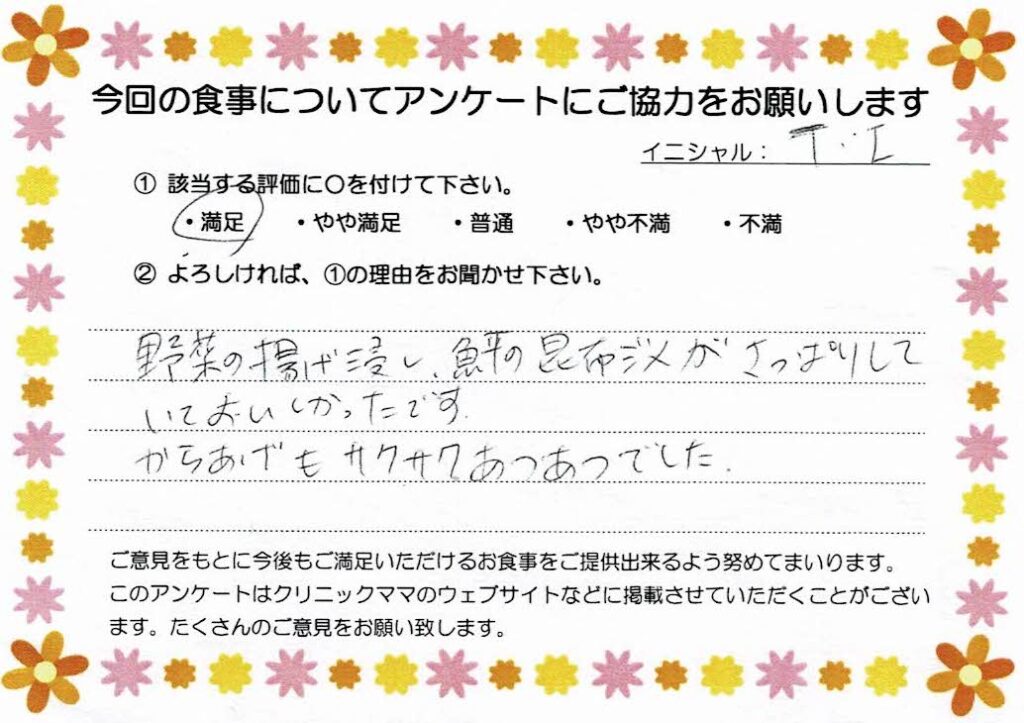 今回の食事についてアンケートにご協力をお願いします
イニシャル： T・I
① 該当する評価に〇を付けて下さい。
・満足 ・やや満足 ・普通 ・やや不満 ・不満
② よろしければ、①の理由をお聞かせ下さい。
野菜の揚げ浸し、魚平の昆布ジメがさっぱりして
いておいしかったです.
からあげもサクサクあつあつでした.
ご意見をもとに今後もご満足いただけるお食事をご提供出来るよう努めてまいります。
このアンケートはクリニックママのウェブサイトなどに掲載させていただくことがござい
ます。たくさんのご意見をお願い致します。